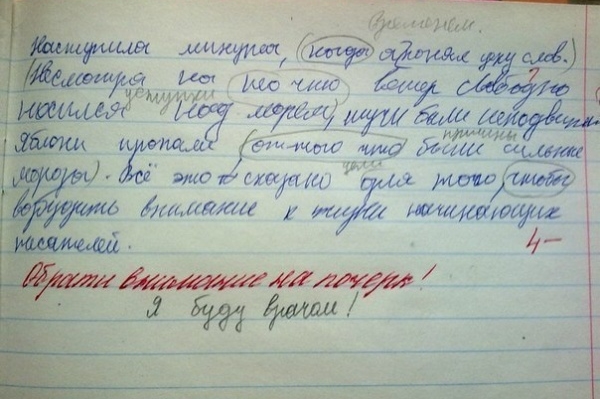 временем.
Наступила минута, (когда я понял цену слов.)
(Несмотря на то что ветер свободно
уступки
носился над морем, тучи были неподвижн
причины
Яблони пропали (от того что были сильные
цели
морозы). Всё это сказано для того, чтобы
возбудить внимание к жизни начинающих
писателей. 4-
Обрати внимание на почерк!
Я буду врачом!